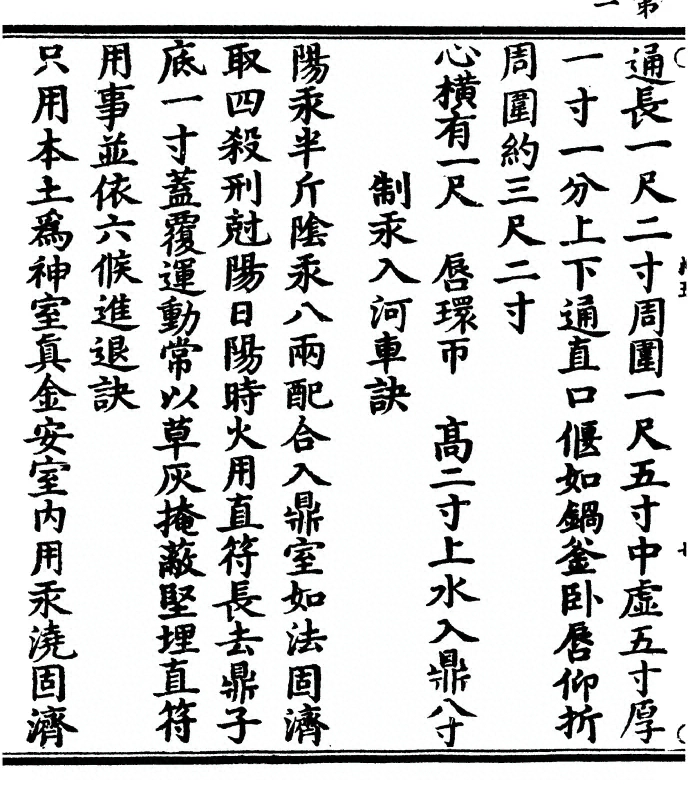 通長一尺二寸周圍一尺五寸中虛五寸厚
一寸一分上下通直口偃如鍋釜卧唇仰折
周圍約三尺二寸
心橫有一尺　唇環帀　髙二寸上水入鼎八寸
制汞入河車訣
陽汞半斤陰汞八兩配合入鼎室如法固濟
取四殺刑尅陽日陽時火用直符長去鼎子
底一寸蓋覆運動常以草灰掩蔽堅埋直符
用事並依六候進退訣
只用本土爲神室眞金安室内用汞澆固濟